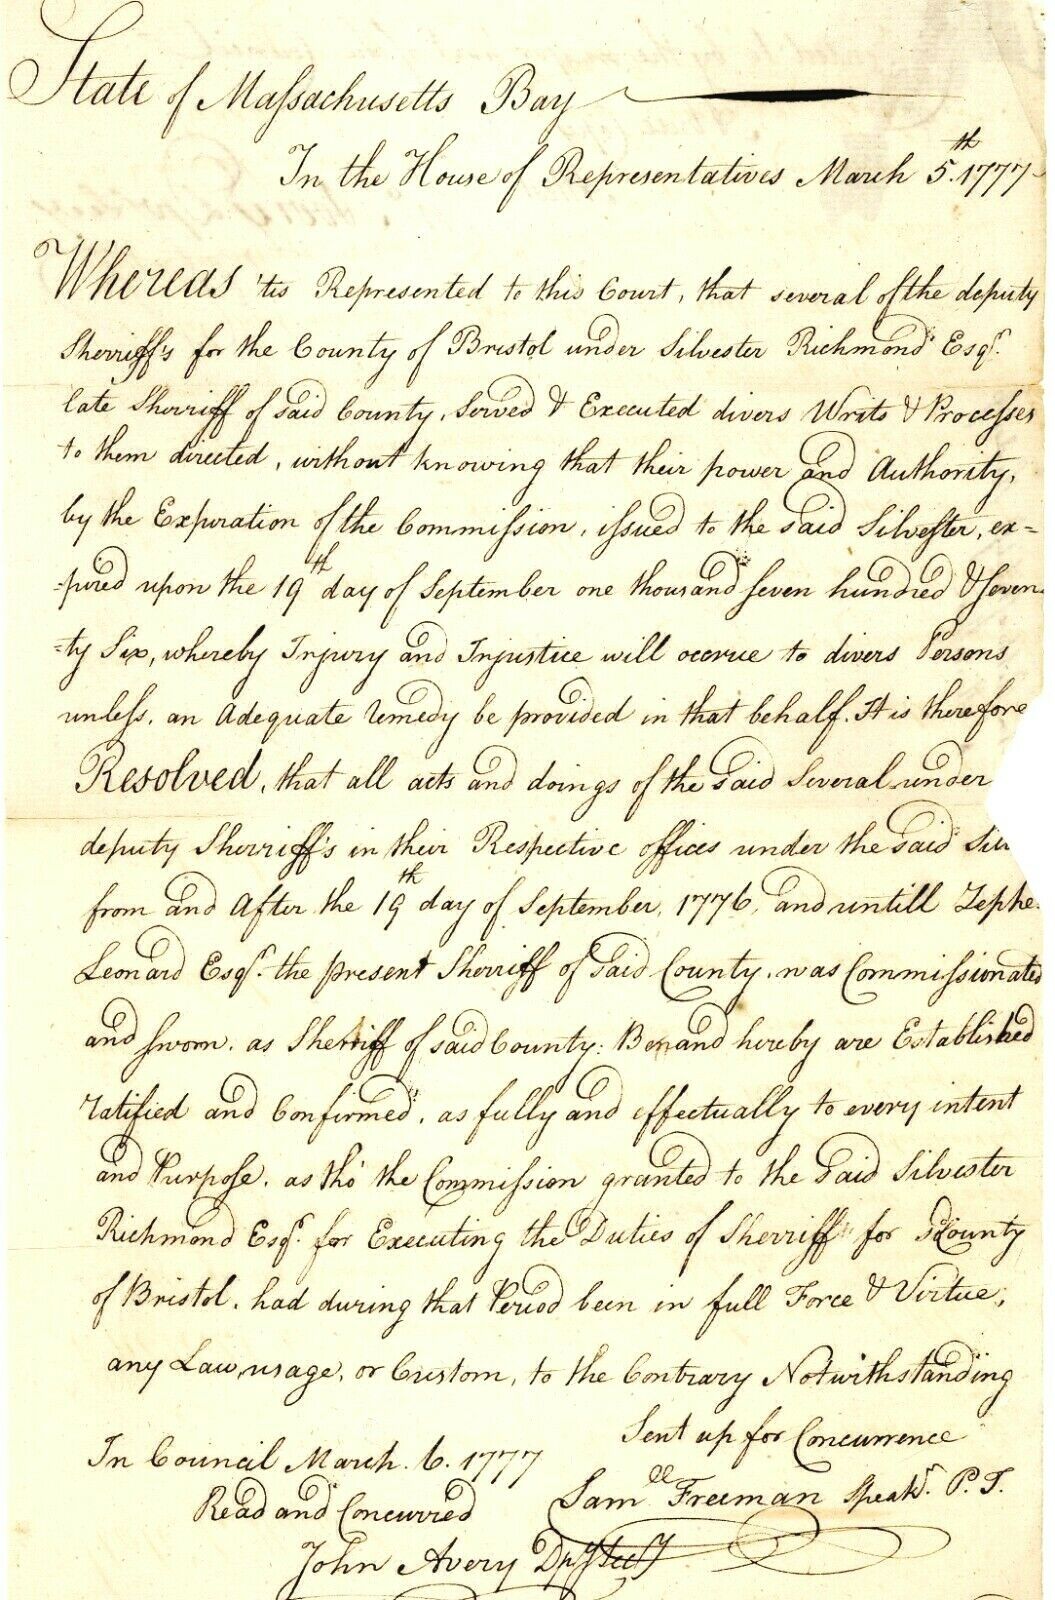 State of Massachusetts Bay
In the House of Representatives March 5.th 1777
Whereas 'tis Represented to this Court, that several of the deputy
Sherriff's for the County of Bristol under Silvester Richmond Esqr.
late Sherriff of said County, Served & Executed divers Writs & Processes
to them directed, without knowing that their power and Authority,
by the Expiration of the Commission, issued to the said Silvester, ex=
=pired upon the 19th day of September one thousand seven hundred & seven
=ty Six, whereby Injury and Injustice will accrue to divers Persons
unless, an Adequate remedy be provided in that behalf. It is therefore
Resolved, that all acts and doings of the said Several under
deputy Sherriff's in their Respective offices under the said Silv
from and After the 19th day of September, 1776, and untill Zephe
Leonard Esqr. the present Sherriff of said County, was Commissionated
and sworn, as Sherriff of said County: Be and hereby are Established
ratified and Confirmed, as fully and effectually to every intent
and Purpose, as tho' the Commission granted to the said Silvester
Richmond Esqr. for Executing the Duties of Sherriff for sd County
of Bristol, had during that Period been in full Force & Virtue,
any Law, usage, or Custom, to the Contrary Notwithstanding
Sent up for Concurrence
Samll Freeman Speakr. P. T.
In Council March. 6. 1777
Read and Concurred
John Avery Dpy Secy